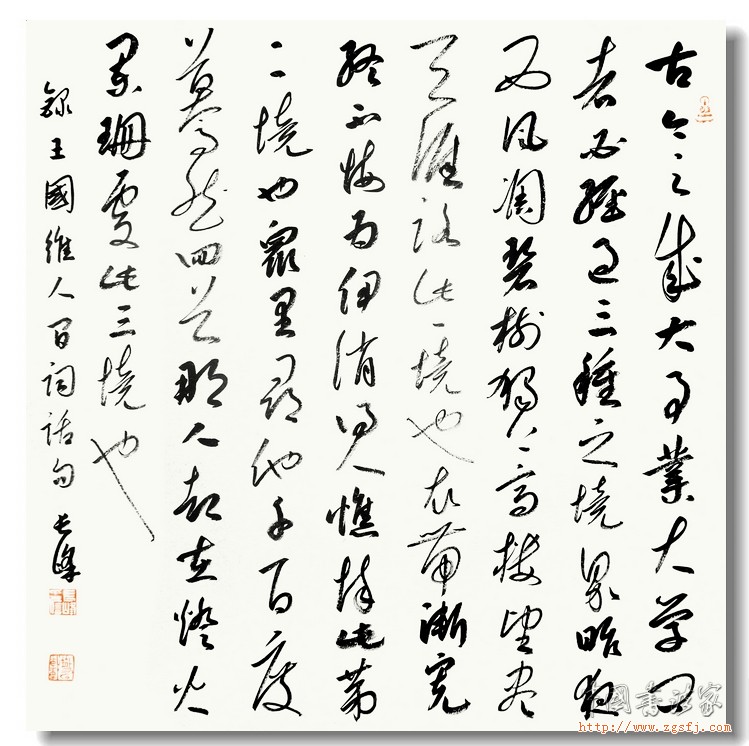 古今之成大事業大學問
者必經過三種之境界昨夜
西風凋碧樹獨上高樓望盡
天涯路此一境也衣帶漸寬
終不悔為伊消得人憔悴此第
二境也眾里尋他千百度
驀然回首那人却在燈火
闌珊處此三境也
錄王國維人間詞話句
中國書法家
http://www.zgsfj.com